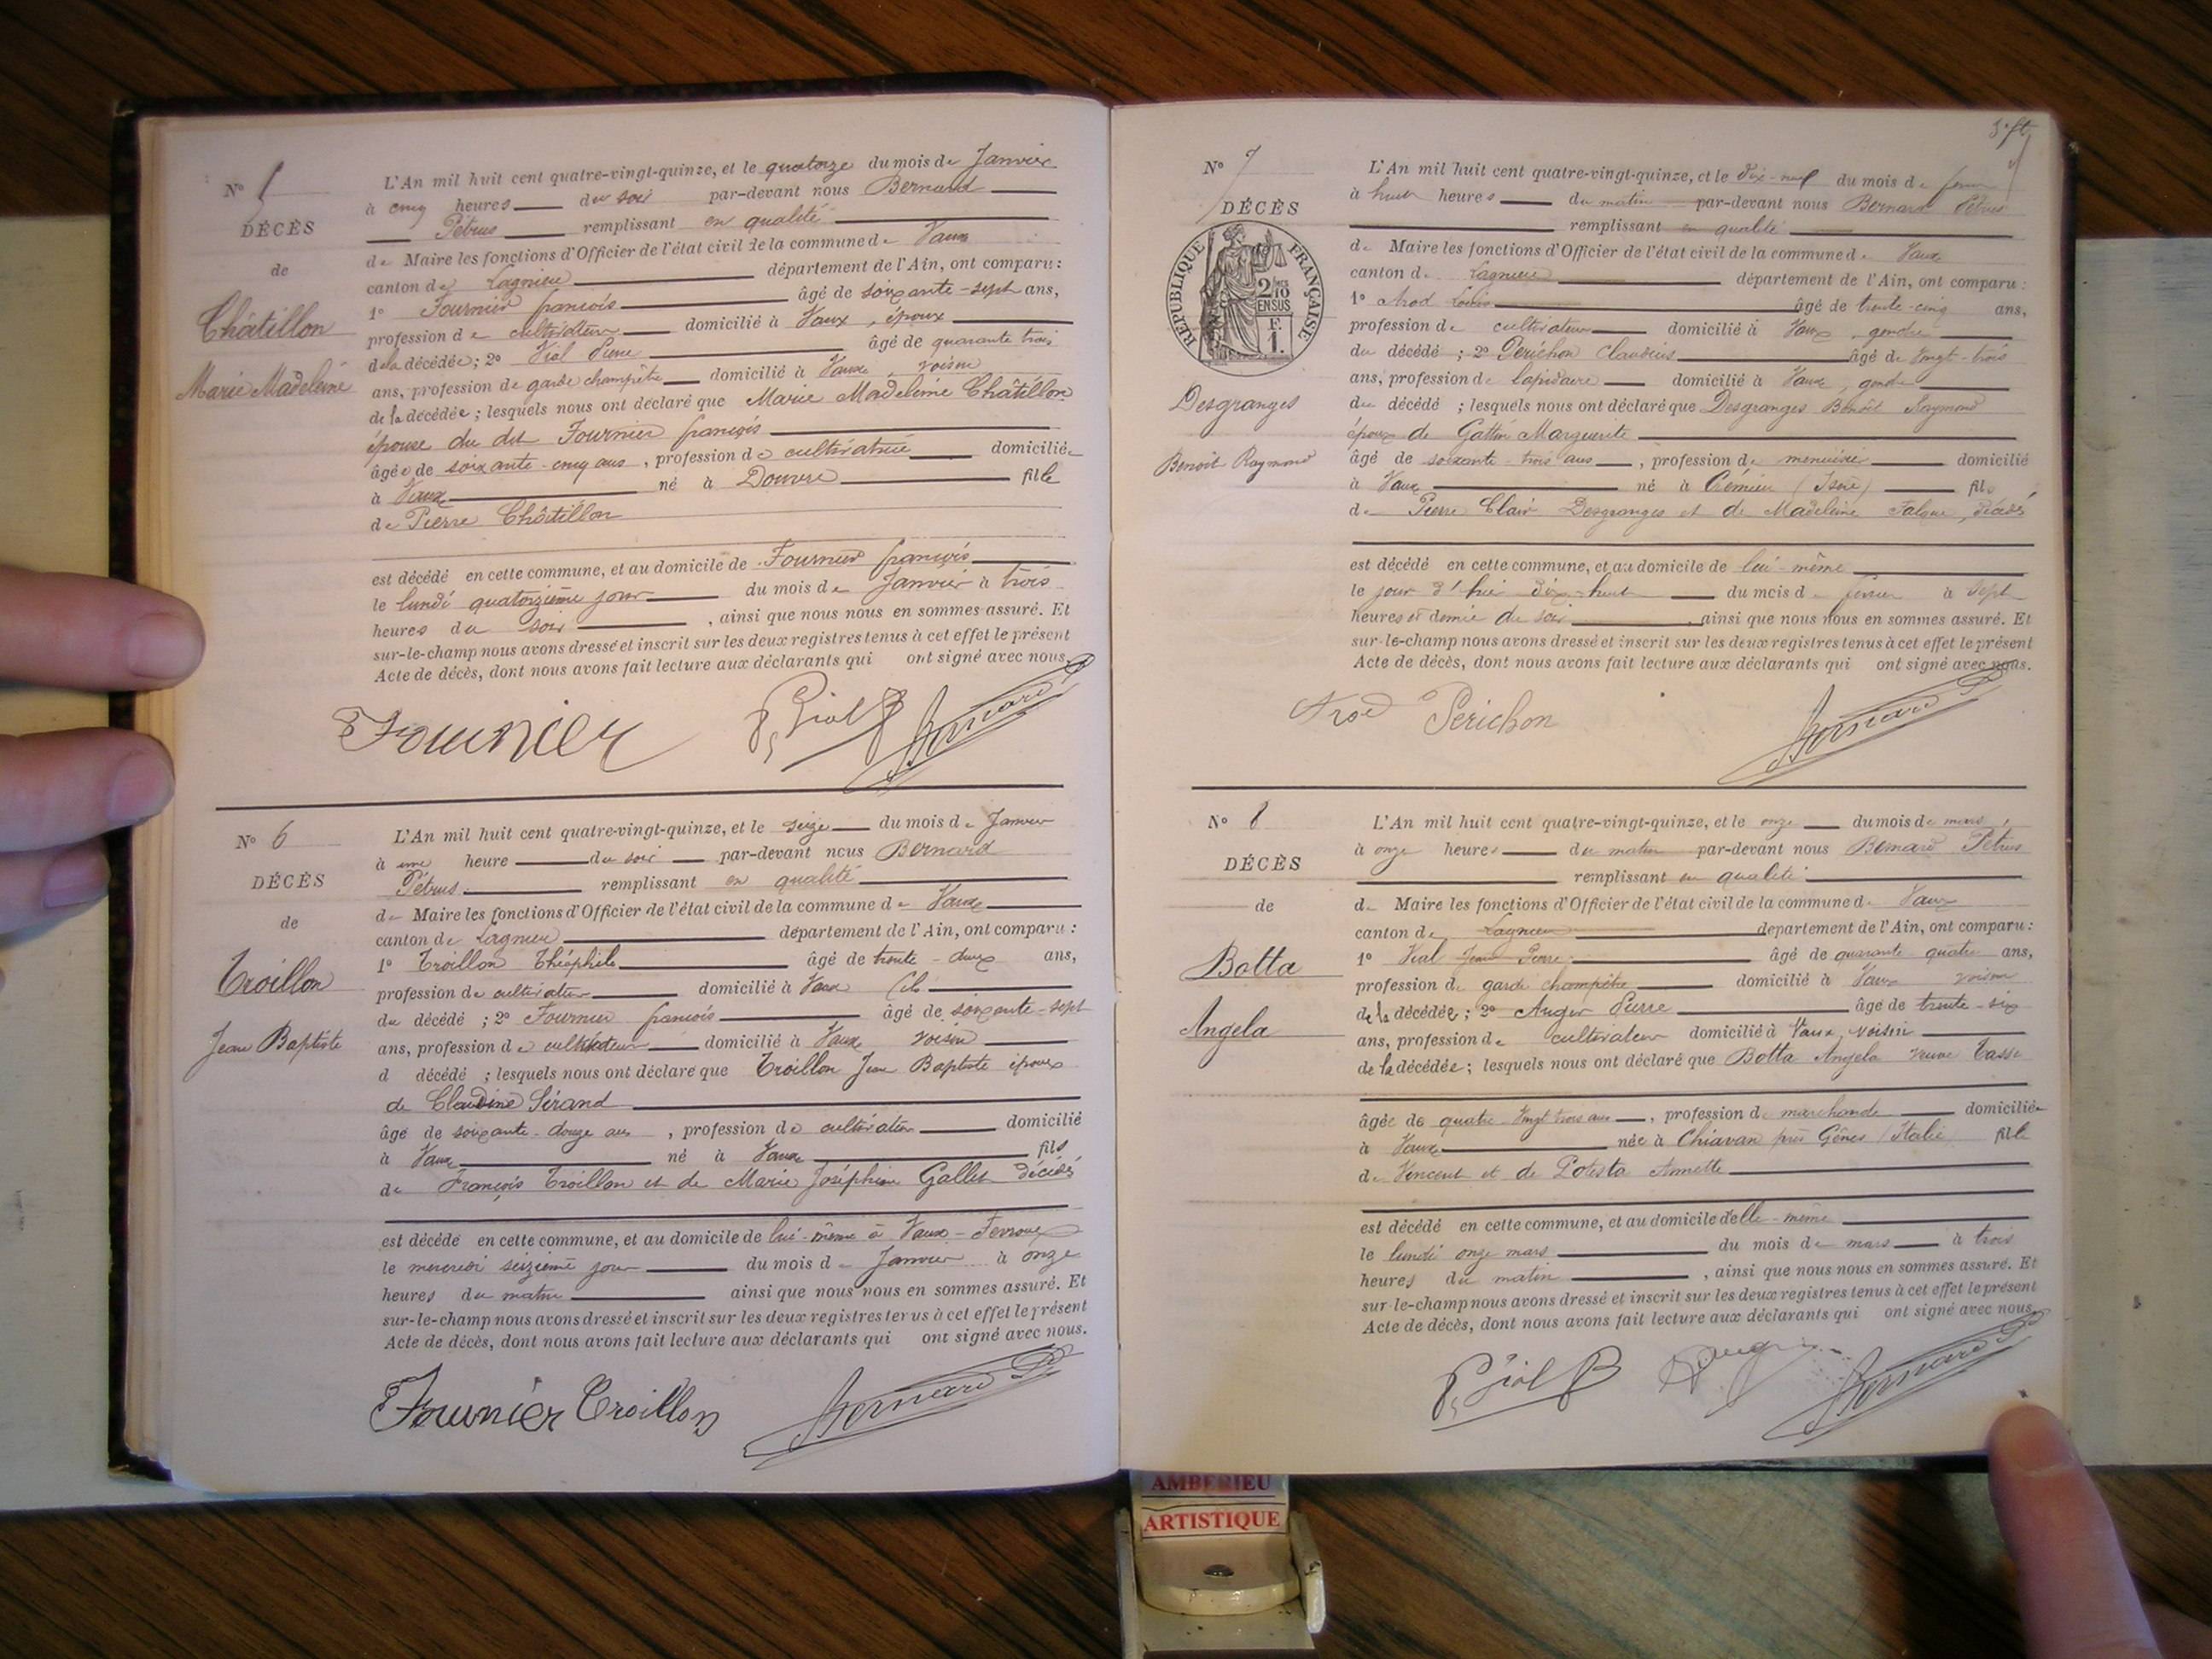 N° 5
DÉCÈS
de
Châtillon
Marie Madeleine
L'An mil huit cent quatre-vingt-quinze, et le quatorze du mois de Janvier
à cinq heures du soir par-devant nous Bernard
Pétrus remplissant en qualité
de Maire les fonctions d'Officier de l'état civil de la commune de Vaux
canton de Lagnieu département de l'Ain, ont comparu :
1° Fournier françois âgé de soixante-sept ans,
profession de cultivateur domicilié à Vaux, époux
de la décédée ; 2° Vial Pierre âgé de quarante trois
ans, profession de garde champêtre domicilié à Vaux, voisin
de la décédée ; lesquels nous ont déclaré que Marie Madeleine Châtillon
épouse du dit Fournier françois
âgée de soixante-cinq ans, profession de cultivatrice domiciliée
à Vaux né à Douvre fille
de Pierre Châtillon
est décédé en cette commune, et au domicile de Fournier françois
le lundi quatorzième jour du mois de Janvier à trois
heures du soir, ainsi que nous nous en sommes assuré. Et
sur-le-champ nous avons dressé et inscrit sur les deux registres tenus à cet effet le présent
Acte de décès, dont nous avons fait lecture aux déclarants qui ont signé avec nous.
Fournier Vial P Bernard P
N° 6
DÉCÈS
de
Troillon
Jean Baptiste
L'An mil huit cent quatre-vingt-quinze, et le seize du mois de Janvier
à une heure du soir par-devant nous Bernard
Pétrus remplissant en qualité
de Maire les fonctions d'Officier de l'état civil de la commune de Vaux
canton de Lagnieu département de l'Ain, ont comparu :
1° Troillon Théophile âgé de trente-deux ans,
profession de cultivateur domicilié à Vaux fils
du décédé ; 2° Fournier françois âgé de soixante-sept
ans, profession de cultivateur domicilié à Vaux voisin
d décédé ; lesquels nous ont déclaré que Troillon Jean Baptiste époux
de Claudine Sérand
âgé de soixante-douze ans, profession de cultivateur domicilié
à Vaux né à Vaux fils
de François Troillon et de Marie Joséphine Gallet décédés
est décédé en cette commune, et au domicile de lui-même à Vaux-
le mercredi seizième jour du mois de Janvier à onze
heures du matin ainsi que nous nous en sommes assuré. Et
sur-le-champ nous avons dressé et inscrit sur les deux registres tenus à cet effet le présent
Acte de décès, dont nous avons fait lecture aux déclarants qui ont signé avec nous.
Fournier Troillon Bernard P
N° 7
DÉCÈS
RÉPUBLIQUE FRANÇAISE
2/10 EN SUS
F. 1.
Desgranges
Benoit Raymond
L'An mil huit cent quatre-vingt-quinze, et le dix-neuf du mois de
à huit heures du matin par-devant nous Bernard Pétrus
remplissant en qualité
de Maire les fonctions d'Officier de l'état civil de la commune de Vaux
canton de Lagnieu département de l'Ain, ont comparu :
1° Arod Louis âgé de trente-cinq ans,
profession de cultivateur domicilié à Vaux, gendre
du décédé ; 2° Perichon Claudius âgé de vingt-trois
ans, profession de lapidaire domicilié à Vaux, gendre
du décédé ; lesquels nous ont déclaré que Desgranges Benoît Raymond
époux de Gattin Marguerite
âgé de soixante-trois ans, profession de menuisier domicilié
à Vaux né à Crémieu (Isère) fils
de Pierre Clair Desgranges et de Madeleine décédés
est décédé en cette commune, et au domicile de lui-même
le jour d'hier dix-huit du mois de février à sept
heures et demie du soir, ainsi que nous nous en sommes assuré. Et
sur-le-champ nous avons dressé et inscrit sur les deux registres tenus à cet effet le présent
Acte de décès, dont nous avons fait lecture aux déclarants qui ont signé avec nous.
Arod Perichon Bernard P
N° 8
DÉCÈS
de
Botta
Angela
L'An mil huit cent quatre-vingt-quinze, et le onze du mois de mars,
à onze heures du matin par-devant nous Bernard Pétrus
remplissant en qualité
de Maire les fonctions d'Officier de l'état civil de la commune de Vaux
canton de Lagnieu département de l'Ain, ont comparu :
1° Vial Jean Pierre âgé de quarante quatre ans,
profession de garde champêtre domicilié à Vaux voisin
de la décédée ; 2° Auger Pierre âgé de trente-six
ans, profession de cultivateur domicilié à Vaux, voisin
de la décédée ; lesquels nous ont déclaré que Botta Angela veuve Tasso
âgée de quatre-vingt trois ans, profession de marchande domiciliée
à Vaux née à Chiavari près Gênes (Italie) fille
de Vincent et de Potesta Annette
est décédé en cette commune, et au domicile d'elle-même
le lundi onze mars du mois de mars à trois
heures du matin, ainsi que nous nous en sommes assuré. Et
sur-le-champ nous avons dressé et inscrit sur les deux registres tenus à cet effet le présent
Acte de décès, dont nous avons fait lecture aux déclarants qui ont signé avec nous.
Vial P Auger Bernard P
AMBERIEU
ARTISTIQUE